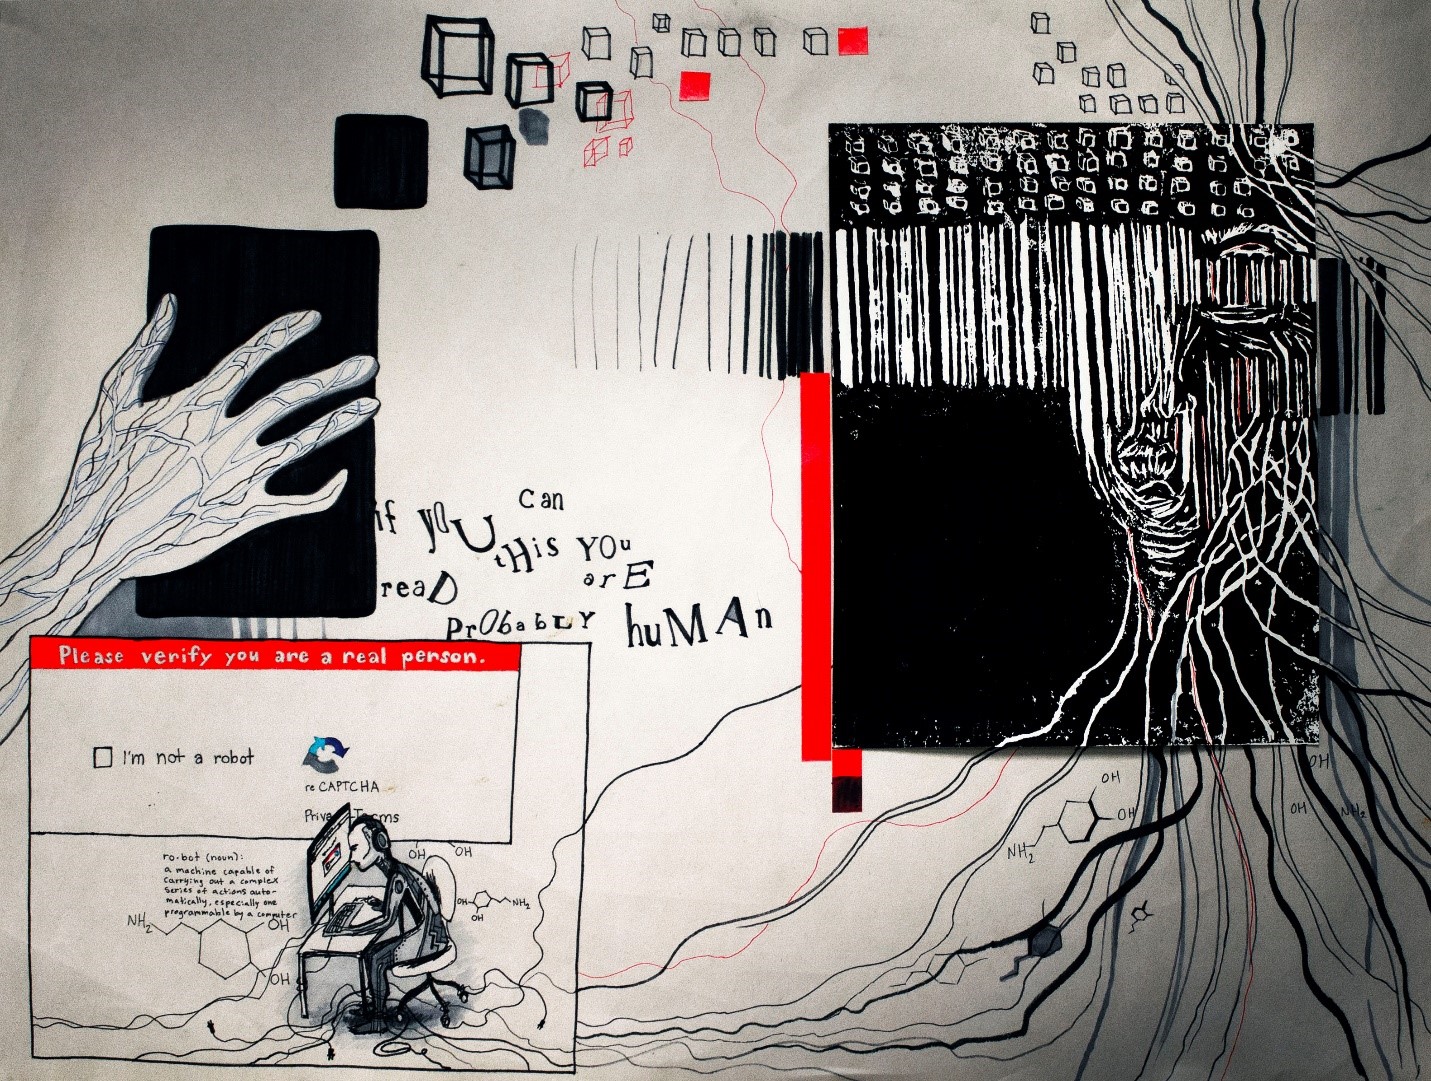 if you can
read this you
are
probably human
Please verify you are a real person.
I'm not a robot
reCAPTCHA
ro·bot (noun):
a machine capable of
carrying out a complex
series of actions auto-
matically, especially one
programmable by a computer
NH2
OH
OH
OH
OH
OH
OH
NH2
OH
OH
NH2
OH
OH
NH2